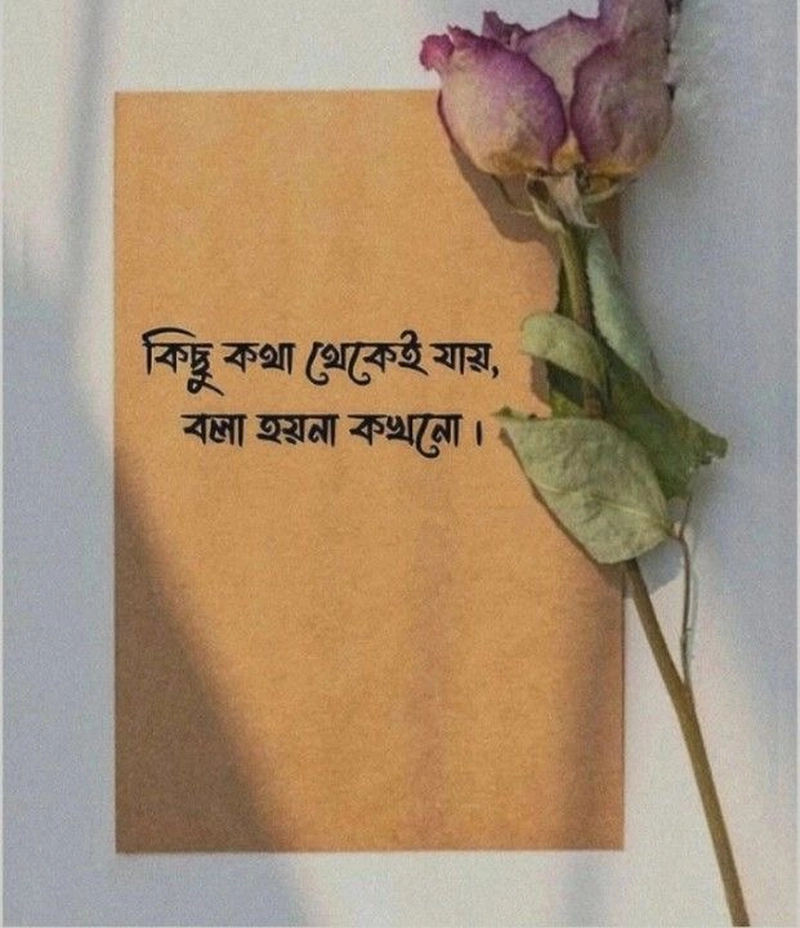 কিছু কথা থেকেই যায়,
বলা হয়না কখনো।